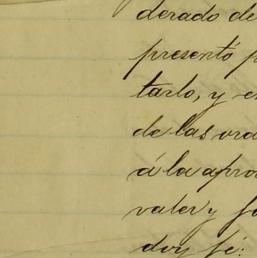 derado de
presentó p
tarlo, y e
de las ora
á la apro
valer y fa
doy fé: